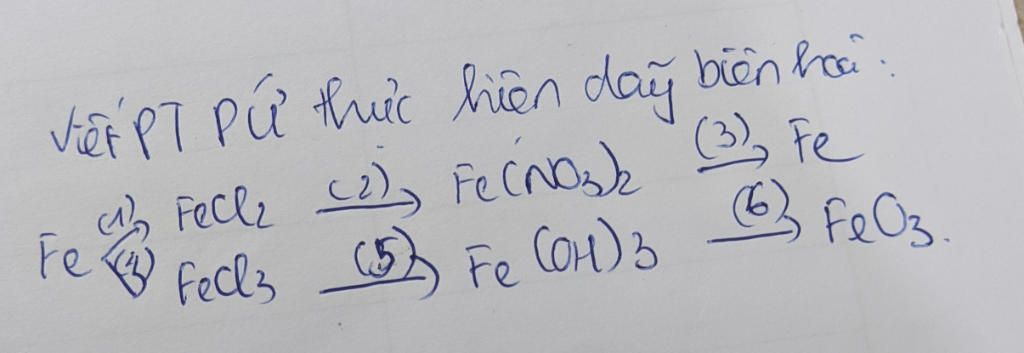 Viết PT PỨ thực hiện dãy biến hoá:
Fe (1)→ FeCl2 (2)→ Fe(NO3)2 (3)→ Fe
(4) FeCl3 (5)→ Fe(OH)3 (6)→ FeO3.